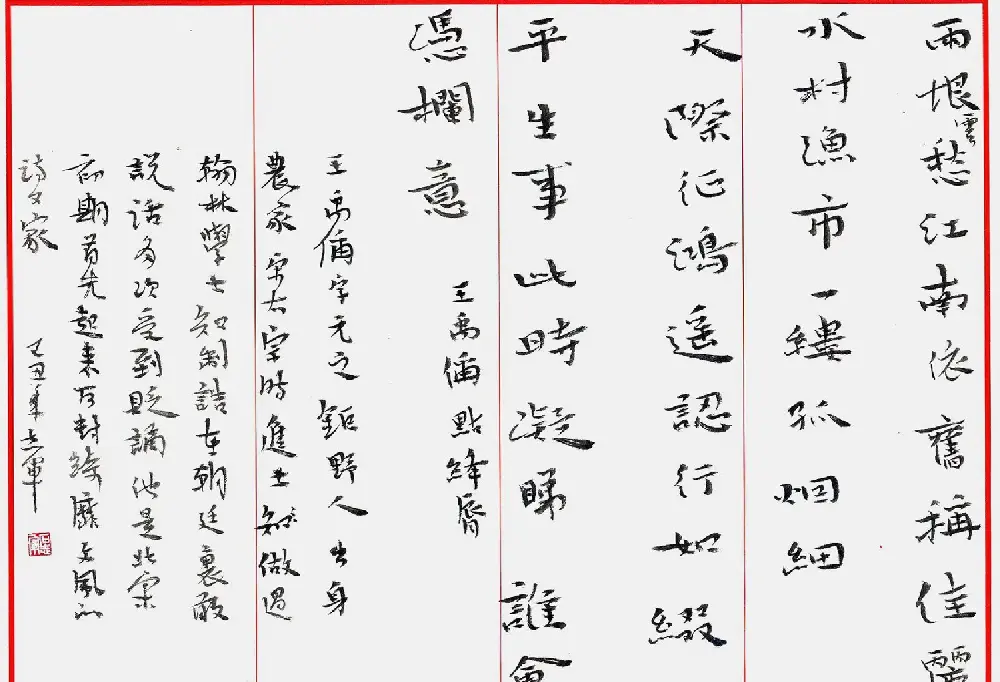 雨恨雲愁江南依舊稱佳麗
水村漁市一縷孤烟細
天際征鴻遥認行如綴
平生事此時凝睇誰會
憑欄意
王禹偁點絳唇
王禹偁字元之鉅野人出身
農家宋太宗時進士做過
翰林學士知制誥在朝廷裏敢
説話多次受到貶謫他是北宋
初期首先起来反對綺靡文風的
詩文家